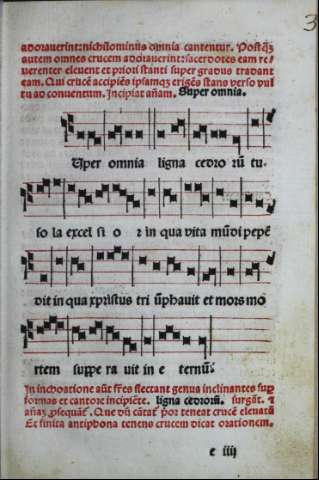 3
adoraverint: nichilominus omnia cantentur. Postq̃
autem omnes crucem adoraverint: sacerdotes eam re
verenter elevent et priori stanti super gradus tradant
eam. Qui crucẽ accipiẽs ipsamq; erigẽs stans verso vul
tu ad conventum. Incipiat añam. Super omnia.
Uper omnia ligna cedro rũ tu-
so la excel si o r in qua vita mũdi pepẽ
dit in qua xp̃istus tri ũphavit et mors mo
rtem suppe ra vit in e ternũ.
In inchoatione aũt fr̃es flectant genua inclinantes sup̃
formas et cantore incipiẽte. ligna cedrorũ. surgãt. et
añaz p̃sequãt́. Que dũ cãtat́ p̃or teneat crucẽ elevatã
Et finita antiphona tenens crucem dicat orationem.
e iiij